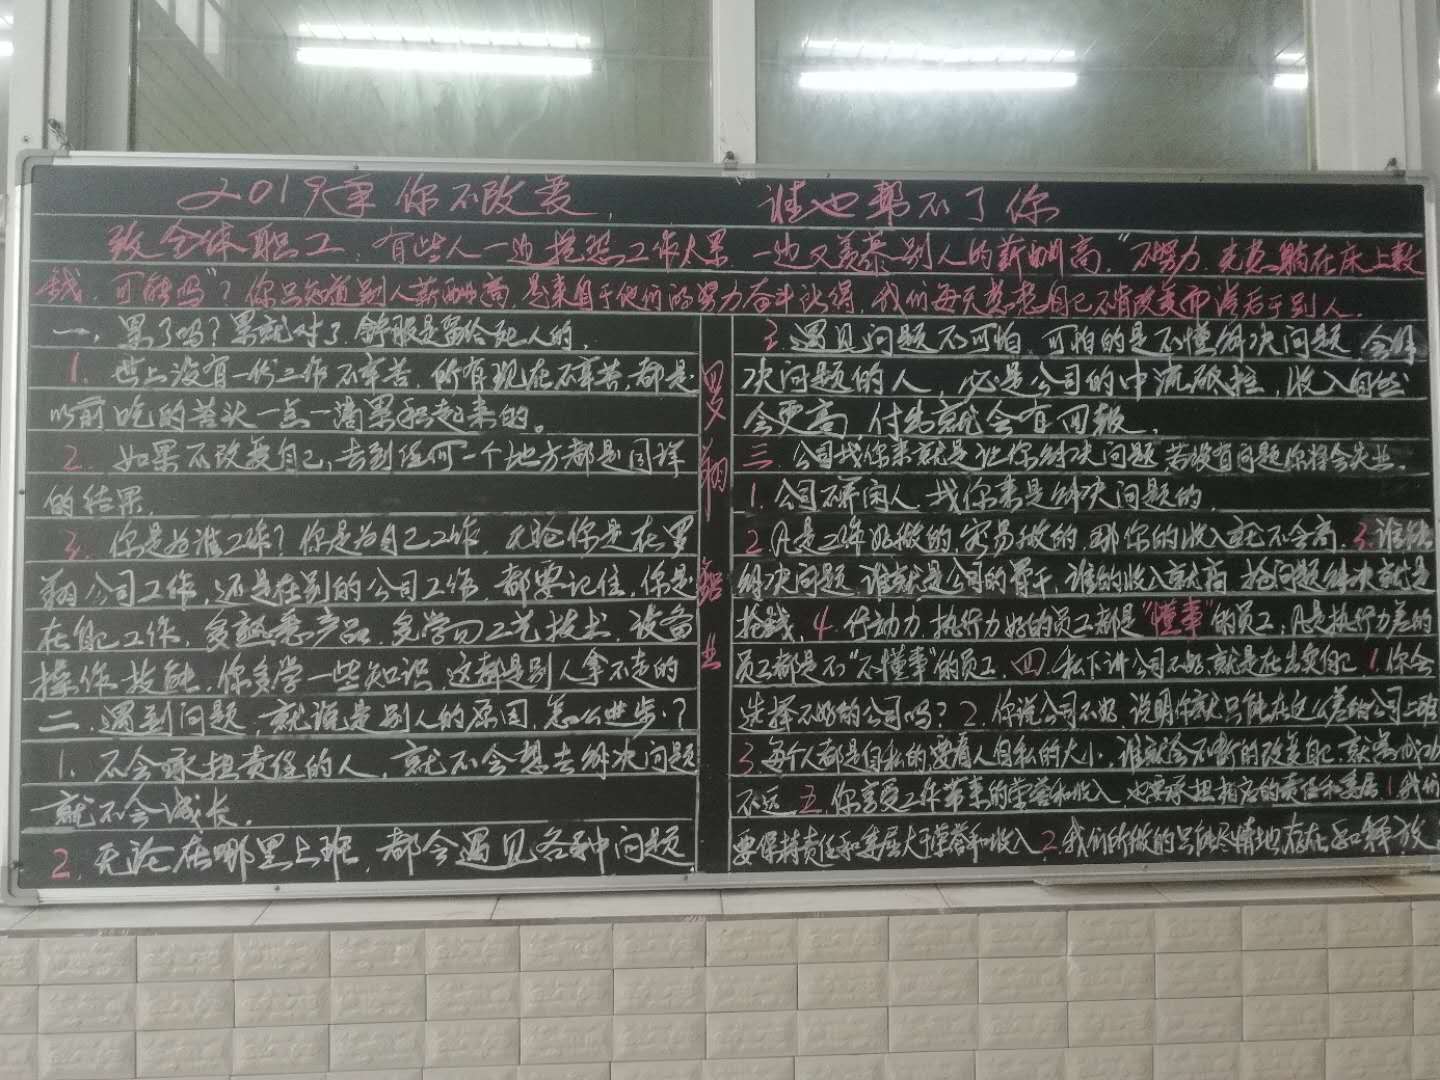 2019年你不改变, 谁也帮不了你
致全体职工: 有些人一边抱怨工作太累 一边又羡慕别人的薪酬高, "不努力, 光想躺在床上数
钱, 可能吗"? 你只知道别人薪酬高, 是来自于他们的努力奋斗所得, 我们每天想着自己不肯改变而落后于别人.
一, 累了吗? 累就对了, 舒服是留给死人的,
1. 世上没有一份工作不辛苦, 所有现在不辛苦, 都是
以前吃的苦头一点一滴累积起来的。
2. 如果不改变自己, 去到任何一个地方都是同样
的结果.
3. 你是为谁工作? 你是为自己工作, 无论你是在罗
翔公司工作, 还是在别的公司工作, 都要记住, 你是
在自己工作, 多熟悉产品, 多学习工艺技术, 设备
操作技能, 你多学一些知识, 这都是别人拿不走的
二, 遇到问题, 就说是别人的原因, 怎么进步?
1. 不会承担责任的人, 就不会想去解决问题
就不会成长,
2. 无论在哪里上班, 都会遇见各种问题
罗翔铝业
3. 遇见问题不可怕, 可怕的是不懂解决问题, 会解
决问题的人, 必是公司的中流砥柱, 收入自然
会更高, 付出就会有回报,
三, 公司找你来就是让你解决问题, 若没有问题你将会失业.
1. 公司不养闲人, 找你来是解决问题的,
2. 凡是工作好做的, 容易做的, 那你的收入就不会高, 3. 谁能
解决问题, 谁就是公司的骨干, 谁的收入就高, 抢问题解决就是
抢钱, 4. 行动力, 执行力好的员工都是"懂事"的员工, 凡是执行力差的
员工都是不"不懂事"的员工. 四, 私下讲公司不好, 就是在出卖自己 1. 你会
选择不好的公司吗? 2. 你说公司不好, 说明你就只能在这么差的公司上班
3. 每个人都是自私的, 要看人自私的大小, 谁就会不断的改变自己, 就离成功
不远 五, 你享受工作带来的荣誉和收入, 也要承担相应的责任和委屈 1. 我们
要保持责任和委屈大于荣誉和收入 2. 我们所做的只能尽情地存在和释放